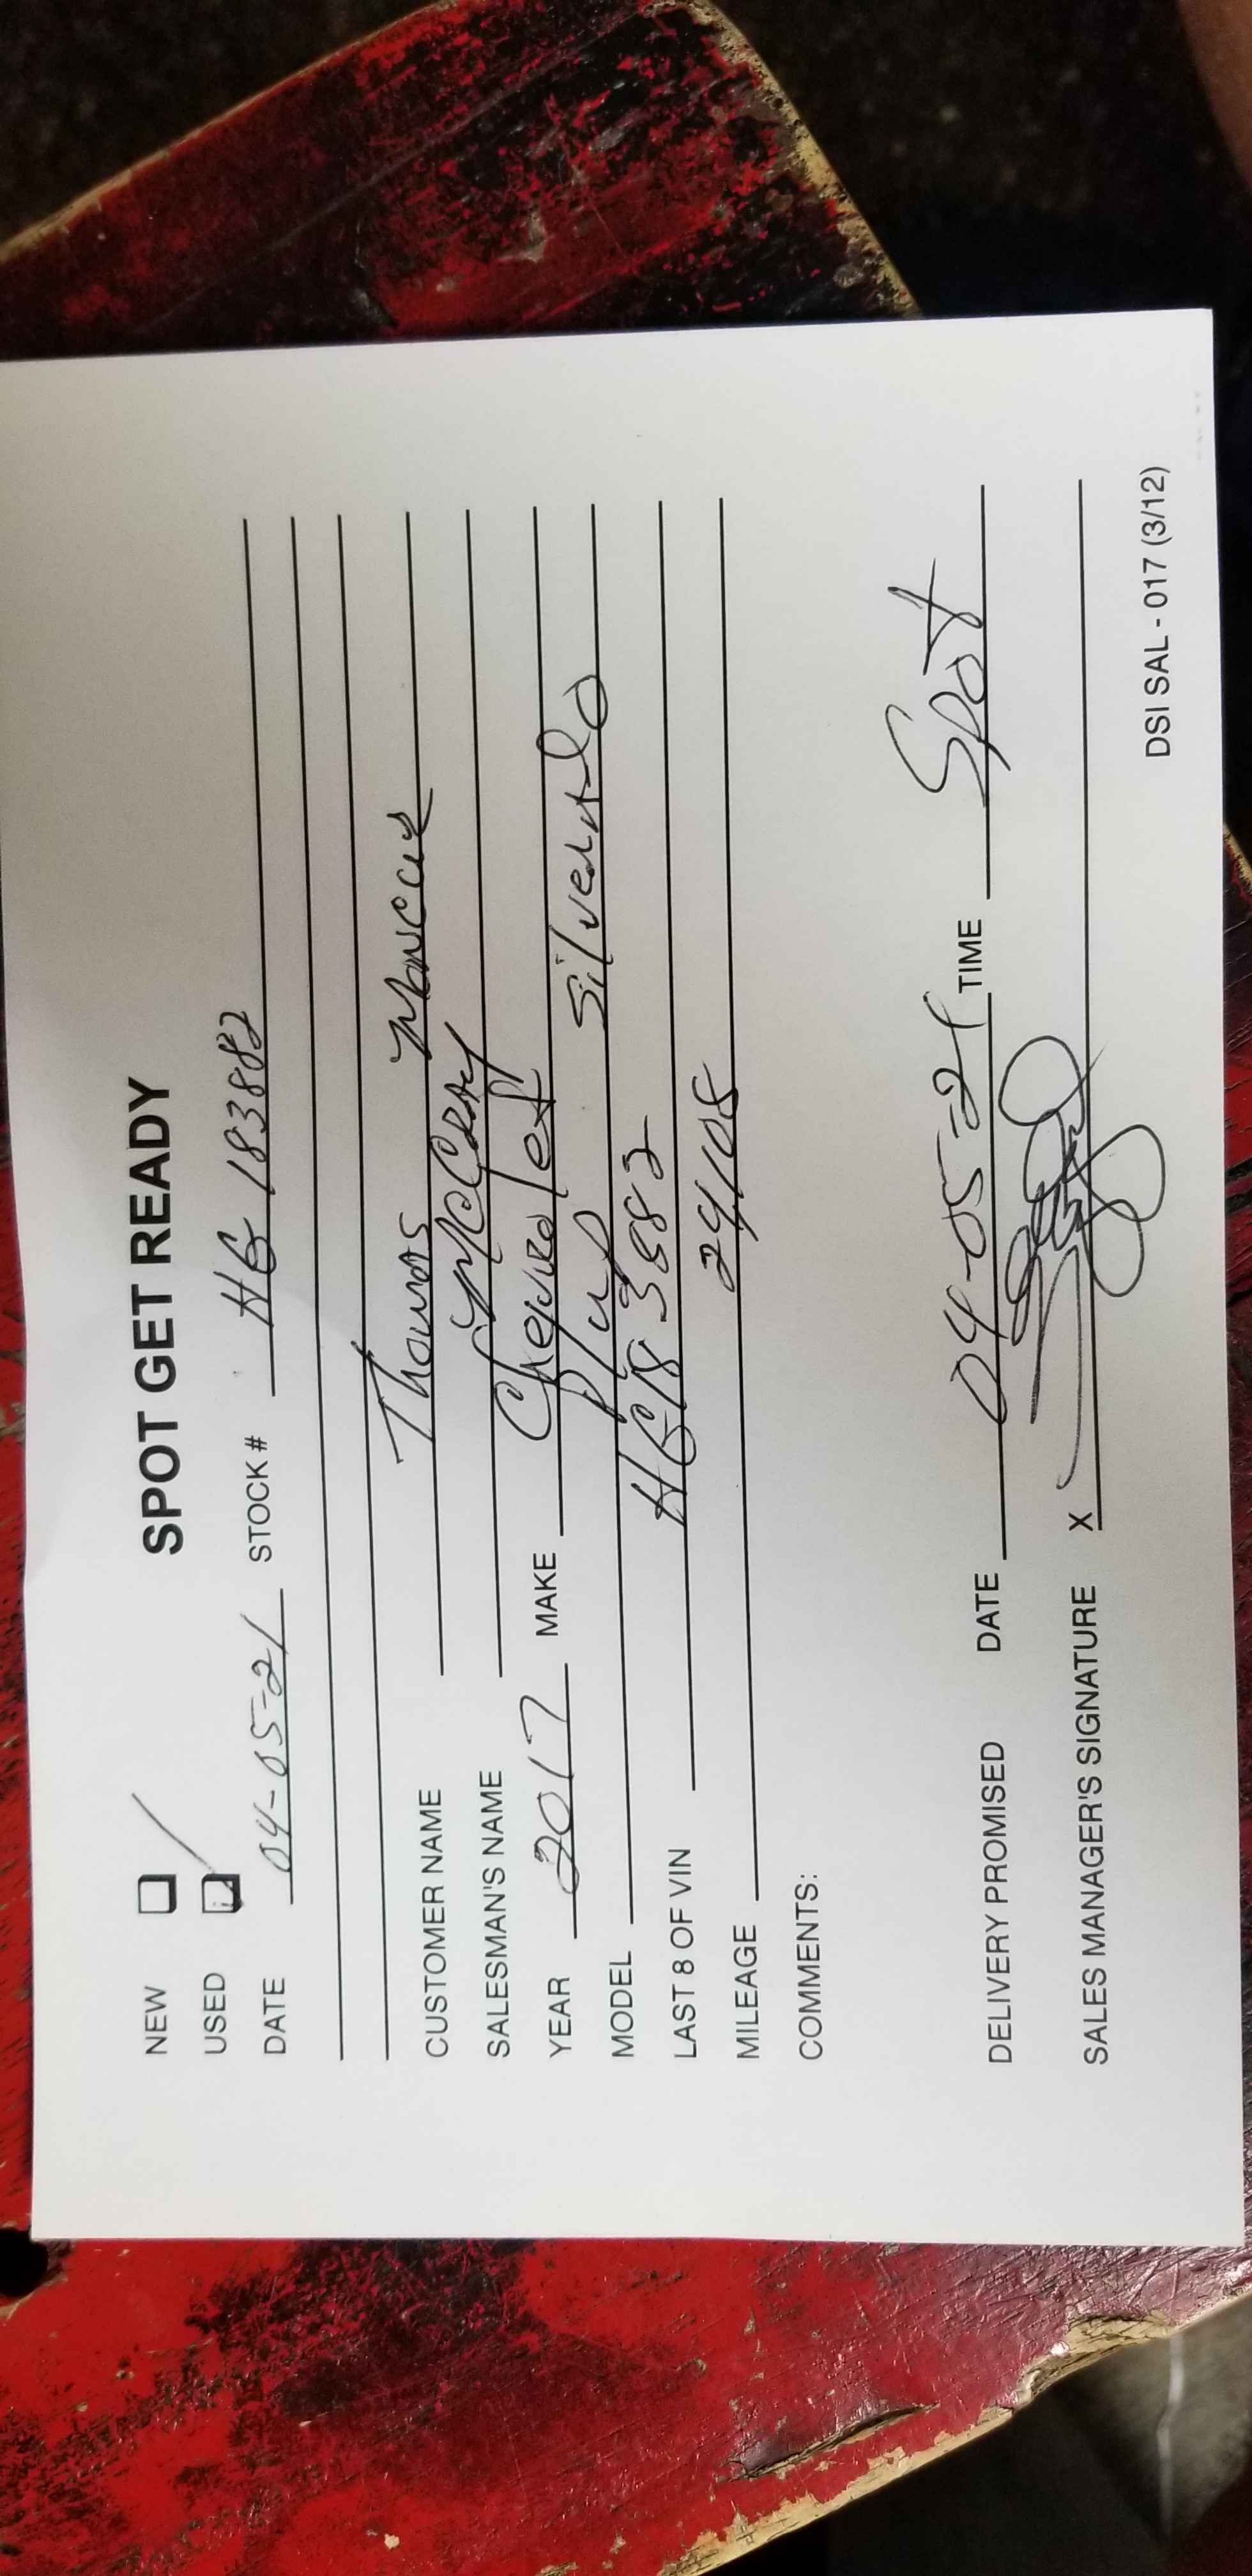 SPOT GET READY
NEW
USED
DATE 04-05-21 STOCK # HG 183882
CUSTOMER NAME Thomas
SALESMAN'S NAME McCrary
YEAR 2017 MAKE Chevrolet
MODEL Silverado
LAST 8 OF VIN HG183882
MILEAGE 24108
COMMENTS:
DELIVERY PROMISED DATE 04-05-21 TIME Spot
SALES MANAGER'S SIGNATURE X
DSI SAL - 017 (3/12)